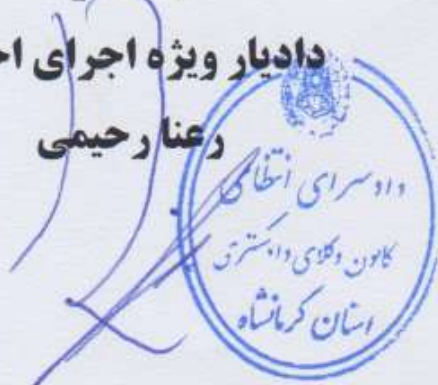 دادیار ویژه اجرای
رعنا رحیمی
دادسرای انتظامی
کانون وکلای دادگستری
استان کرمانشاه